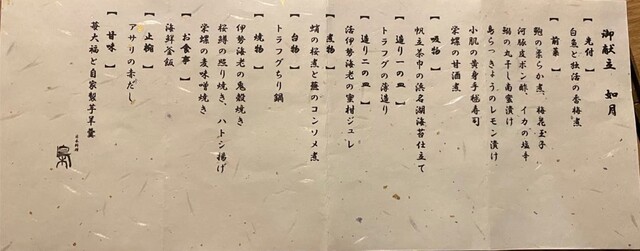 御献立 如月
【 先付 】
白魚と牡蛎の香梅煮
【 前菜 】
鮑の柔らか煮、梅花玉子
河豚皮ポン酢、イカの塩辛
鰯の丸干し南蛮漬け
島らっきょうのレモン漬け
小肌の黄身手毬寿司
栄螺の甘酒煮
【 吸物 】
帆立茶巾の浜名湖海苔仕立て
【 造り一の皿 】
トラフグの薄造り
【 造り二の皿 】
活伊勢海老の蜜柑ジュレ
【 煮物 】
蛸の桜煮と蕪のコンソメ煮
【 台物 】
トラフグちり鍋
【 焼物 】
伊勢海老の鬼殻焼き
桜鱒の照り焼き、ハトシ揚げ
栄螺の麦味噌焼き
【 お食事 】
海鮮釜飯
【 止椀 】
アサリの赤だし
【 甘味 】
苺大福と自家製芋羊羹